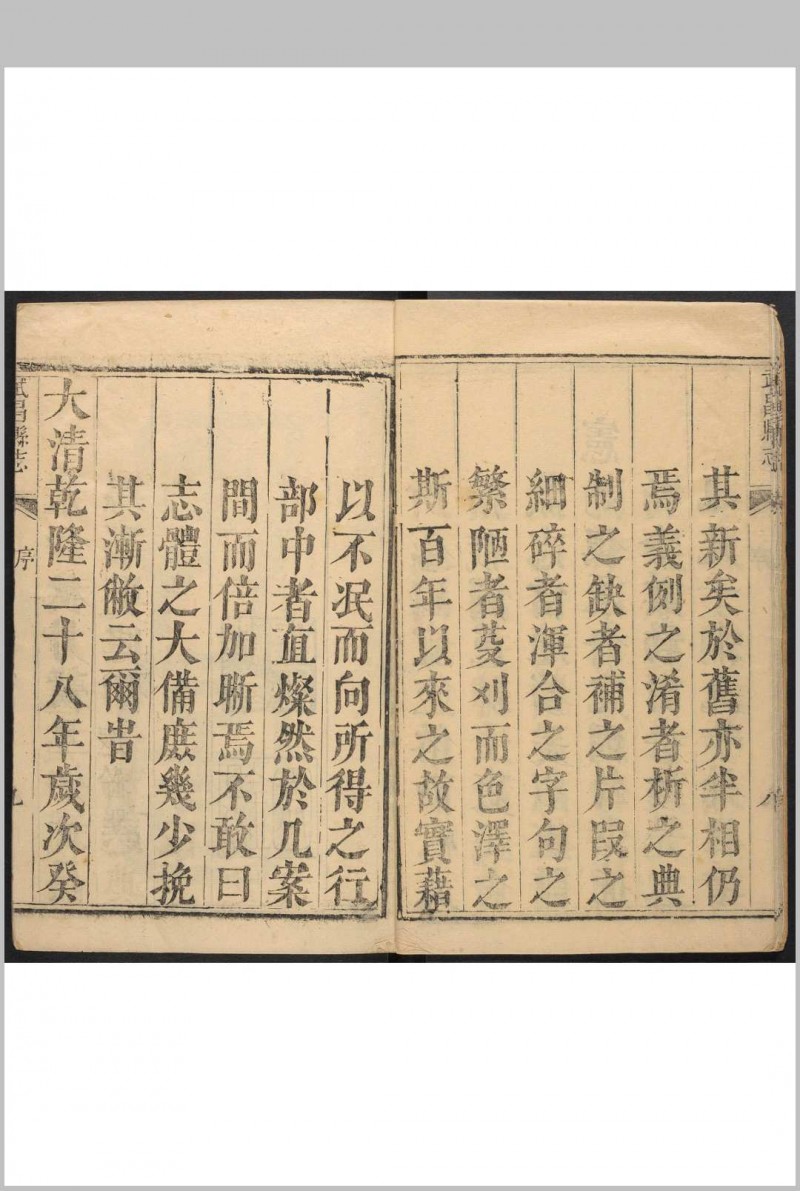 武昌縣志
其新矣於舊亦半相仍
焉義例之淆者析之典
制之缺者補之片叚之
細碎者渾合之字句之
繁陋者芟刈而色澤之
斯百年以來之故實藉
以不泯而向所得之行
部中者直燦然於几案
間而倍加晰焉不敢曰
志體之大備庶幾少挽
其漸敝云爾旹
大清乾隆二十八年歲次癸
武昌縣志
序
九